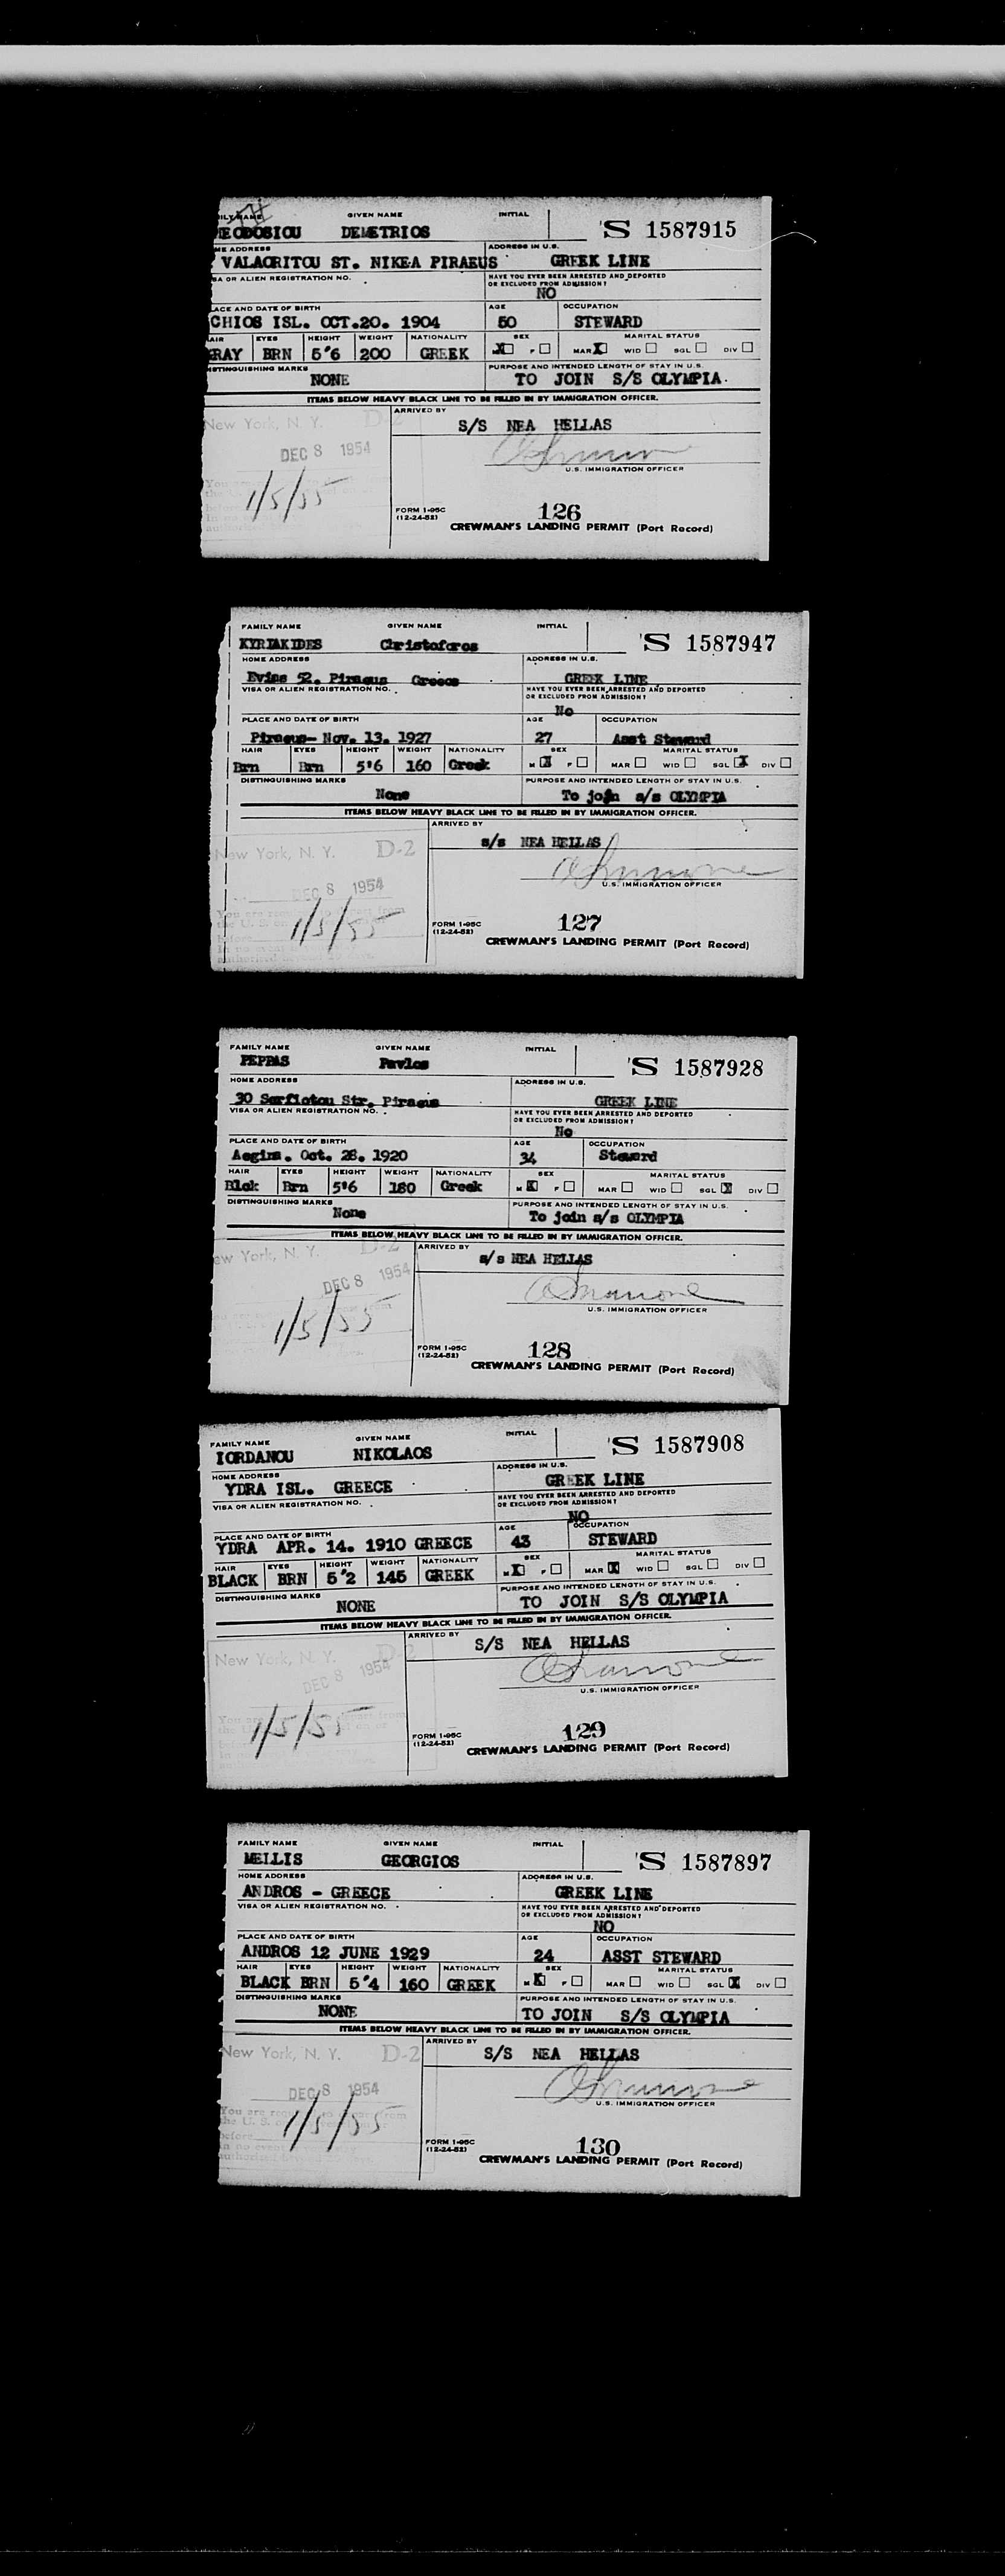 ILY NAME GIVEN NAME INITIAL
EODOSIOU DEMETRIOS S 1587915
ME ADDRESS ADDRESS IN U.S.
VALAORITOU ST. NIKEA PIRAEUS GREEK LINE
SA OR ALIEN REGISTRATION NO. HAVE YOU EVER BEEN ARRESTED AND DEPORTED
OR EXCLUDED FROM ADMISSION?
NO
LACE AND DATE OF BIRTH AGE OCCUPATION
CHIOS ISL. OCT.20. 1904 50 STEWARD
AIR EYES HEIGHT WEIGHT NATIONALITY SEX MARITAL STATUS
GRAY BRN 5"6 200 GREEK X F MAR X WID SGL DIV
DISTINGUISHING MARKS PURPOSE AND INTENDED LENGTH OF STAY IN U.S.
NONE TO JOIN S/S OLYMPIA.
ITEMS BELOW HEAVY BLACK LINE TO BE FILLED IN BY IMMIGRATION OFFICER.
New York, N. Y. D-2 ARRIVED BY
S/S NEA HELLAS
DEC 8 1954
U.S. IMMIGRATION OFFICER
1/5/55
FORM I-95C
(12-24-52)
126
CREWMAN'S LANDING PERMIT (Port Record)
FAMILY NAME GIVEN NAME INITIAL
KYRIAKIDES Christoforos S 1587947
HOME ADDRESS ADDRESS IN U.S.
Evias 52. Piraeus Greece GREEK LINE
VISA OR ALIEN REGISTRATION NO. HAVE YOU EVER BEEN ARRESTED AND DEPORTED
OR EXCLUDED FROM ADMISSION?
No
PLACE AND DATE OF BIRTH AGE OCCUPATION
Piraeus- Nov. 13. 1927 27 Asst Steward
HAIR EYES HEIGHT WEIGHT NATIONALITY SEX MARITAL STATUS
Brn Brn 5"6 160 Greek M X F MAR WID SGL X DIV
DISTINGUISHING MARKS PURPOSE AND INTENDED LENGTH OF STAY IN U.S.
None To join s/s OLYMPIA
ITEMS BELOW HEAVY BLACK LINE TO BE FILLED IN BY IMMIGRATION OFFICER.
New York, N. Y. D-2 ARRIVED BY
s/s NEA HELLAS
DEC 8 1954
U.S. IMMIGRATION OFFICER
1/5/55
FORM I-95C
(12-24-52)
127
CREWMAN'S LANDING PERMIT (Port Record)
FAMILY NAME GIVEN NAME INITIAL
PEPPAS Pavlos S 1587928
HOME ADDRESS ADDRESS IN U.S.
30 Serfiotou Str. Piraeus GREEK LINE
VISA OR ALIEN REGISTRATION NO. HAVE YOU EVER BEEN ARRESTED AND DEPORTED
OR EXCLUDED FROM ADMISSION?
No
PLACE AND DATE OF BIRTH AGE OCCUPATION
Aegina. Oct. 28. 1920 34 Steward
HAIR EYES HEIGHT WEIGHT NATIONALITY SEX MARITAL STATUS
Blck Brn 5"6 180 Greek M X F MAR WID SGL X DIV
DISTINGUISHING MARKS PURPOSE AND INTENDED LENGTH OF STAY IN U.S.
None To join s/s OLYMPIA
ITEMS BELOW HEAVY BLACK LINE TO BE FILLED IN BY IMMIGRATION OFFICER.
ew York, N. Y. D-2 ARRIVED BY
s/s NEA HELLAS
DEC 8 1954
U.S. IMMIGRATION OFFICER
1/5/55
FORM I-95C
(12-24-52)
128
CREWMAN'S LANDING PERMIT (Port Record)
FAMILY NAME GIVEN NAME INITIAL
IORDANOU NIKOLAOS S 1587908
HOME ADDRESS ADDRESS IN U.S.
YDRA ISL. GREECE GREEK LINE
VISA OR ALIEN REGISTRATION NO. HAVE YOU EVER BEEN ARRESTED AND DEPORTED
OR EXCLUDED FROM ADMISSION?
NO
PLACE AND DATE OF BIRTH AGE OCCUPATION
YDRA APR. 14. 1910 GREECE 43 STEWARD
HAIR EYES HEIGHT WEIGHT NATIONALITY SEX MARITAL STATUS
BLACK BRN 5"2 145 GREEK M X F MAR X WID SGL DIV
DISTINGUISHING MARKS PURPOSE AND INTENDED LENGTH OF STAY IN U.S.
NONE TO JOIN S/S OLYMPIA
ITEMS BELOW HEAVY BLACK LINE TO BE FILLED IN BY IMMIGRATION OFFICER.
New York, N. Y. D-2 ARRIVED BY
S/S NEA HELLAS
DEC 8 1954
U.S. IMMIGRATION OFFICER
1/5/55
FORM I-95C
(12-24-52)
129
CREWMAN'S LANDING PERMIT (Port Record)
FAMILY NAME GIVEN NAME INITIAL
MELLIS GEORGIOS S 1587897
HOME ADDRESS ADDRESS IN U.S.
ANDROS - GREECE GREEK LINE
VISA OR ALIEN REGISTRATION NO. HAVE YOU EVER BEEN ARRESTED AND DEPORTED
OR EXCLUDED FROM ADMISSION?
NO
PLACE AND DATE OF BIRTH AGE OCCUPATION
ANDROS 12 JUNE 1929 24 ASST STEWARD
HAIR EYES HEIGHT WEIGHT NATIONALITY SEX MARITAL STATUS
BLACK BRN 5"4 160 GREEK M X F MAR WID SGL X DIV
DISTINGUISHING MARKS PURPOSE AND INTENDED LENGTH OF STAY IN U.S.
NONE TO JOIN S/S OLYMPIA
ITEMS BELOW HEAVY BLACK LINE TO BE FILLED IN BY IMMIGRATION OFFICER.
New York, N. Y. D-2 ARRIVED BY
S/S NEA HELLAS
DEC 8 1954
U.S. IMMIGRATION OFFICER
1/5/55
FORM I-95C
(12-24-52)
130
CREWMAN'S LANDING PERMIT (Port Record)